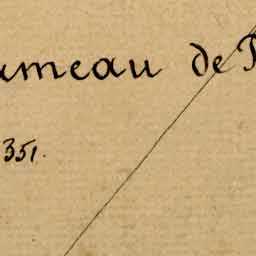 umeau de
351.